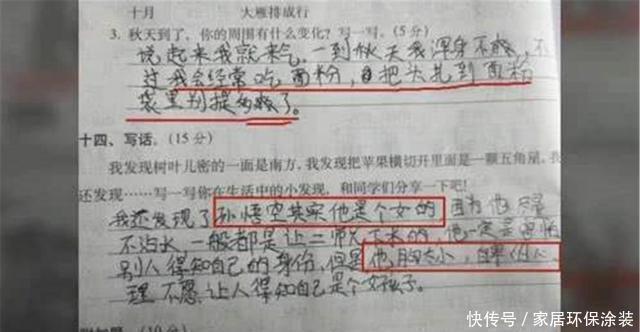 十月 大雁排成行
3. 秋天到了,你的周围有什么变化?写一写。(5分)
说起来我就来气。一到秋天我浑身不
过我会经常吃面粉,把头扎到面粉
袋里别提多了。
十四、写话。(15分)
我发现树叶儿密的一面是南方,我把苹果横切开里面是一颗五角星,我
还发现……写一写你在生活中的小发现,和同学们分享一下吧!
我还发现了孙悟空其实他是个女的因为他
不沾水,一般都是让二师兄下水的,他一定是害怕
别人得知自己的身份,但是他胸太小,自卑心
理不愿让人得知自己是个女孩子。
附加题(10分)
快传号/家居环保涂装